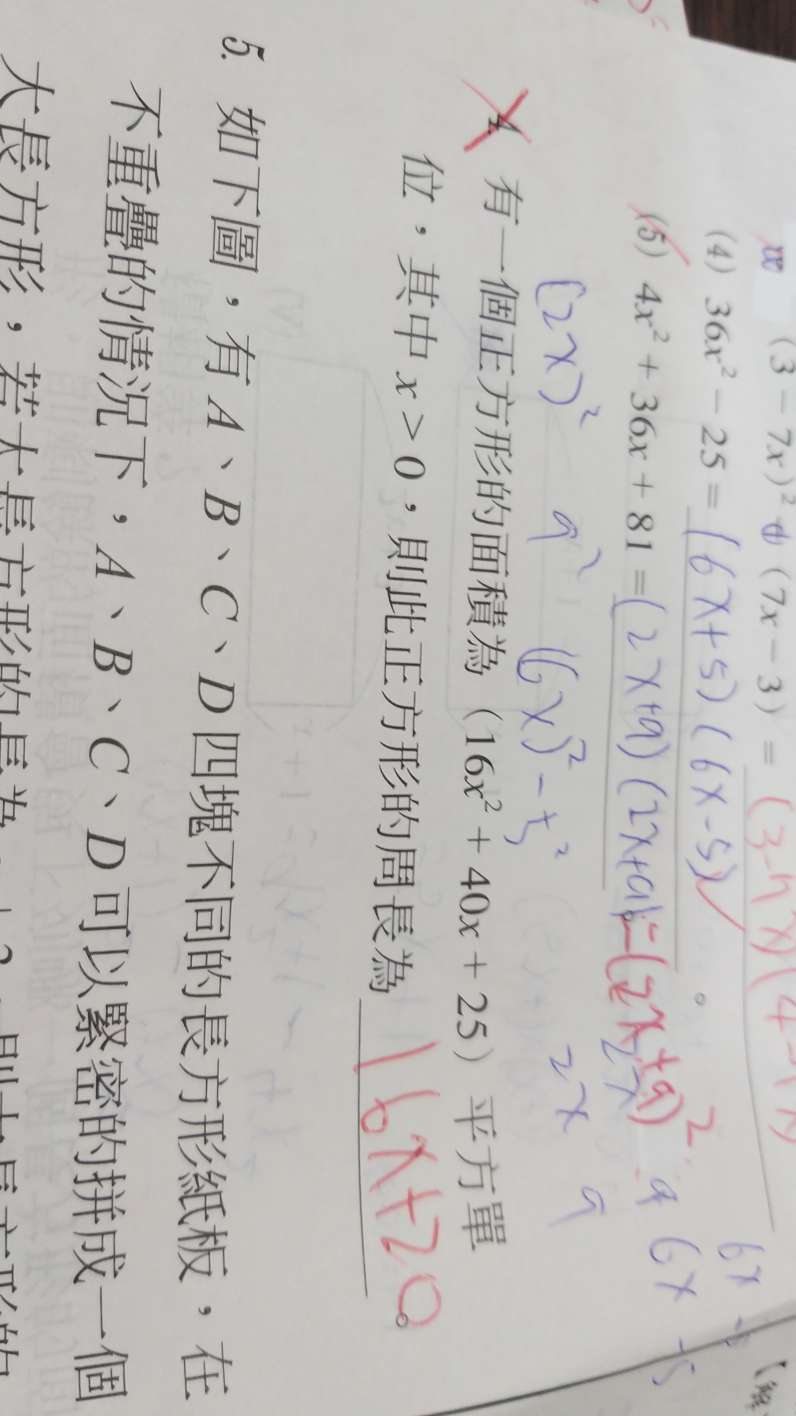 (3 − 7x)² + (7x − 3) = (3-7x)(4-7x)
(4) 36x² − 25 = (6x+5)(6x-5)
(5) 4x² + 36x + 81 = (2x+9)(2x+9) = (2x+9)²
(2x)² 9² (6x)² - 5² 2x 9
4. 有一個正方形的面積為（16x² + 40x + 25）平方單
位，其中 x > 0，則此正方形的周長為 16x+20。
5. 如下圖，有 A、B、C、D 四塊不同的長方形紙板，在
不重疊的情況下，A、B、C、D 可以緊密的拼成一個
大長方形，若大長方形的長為